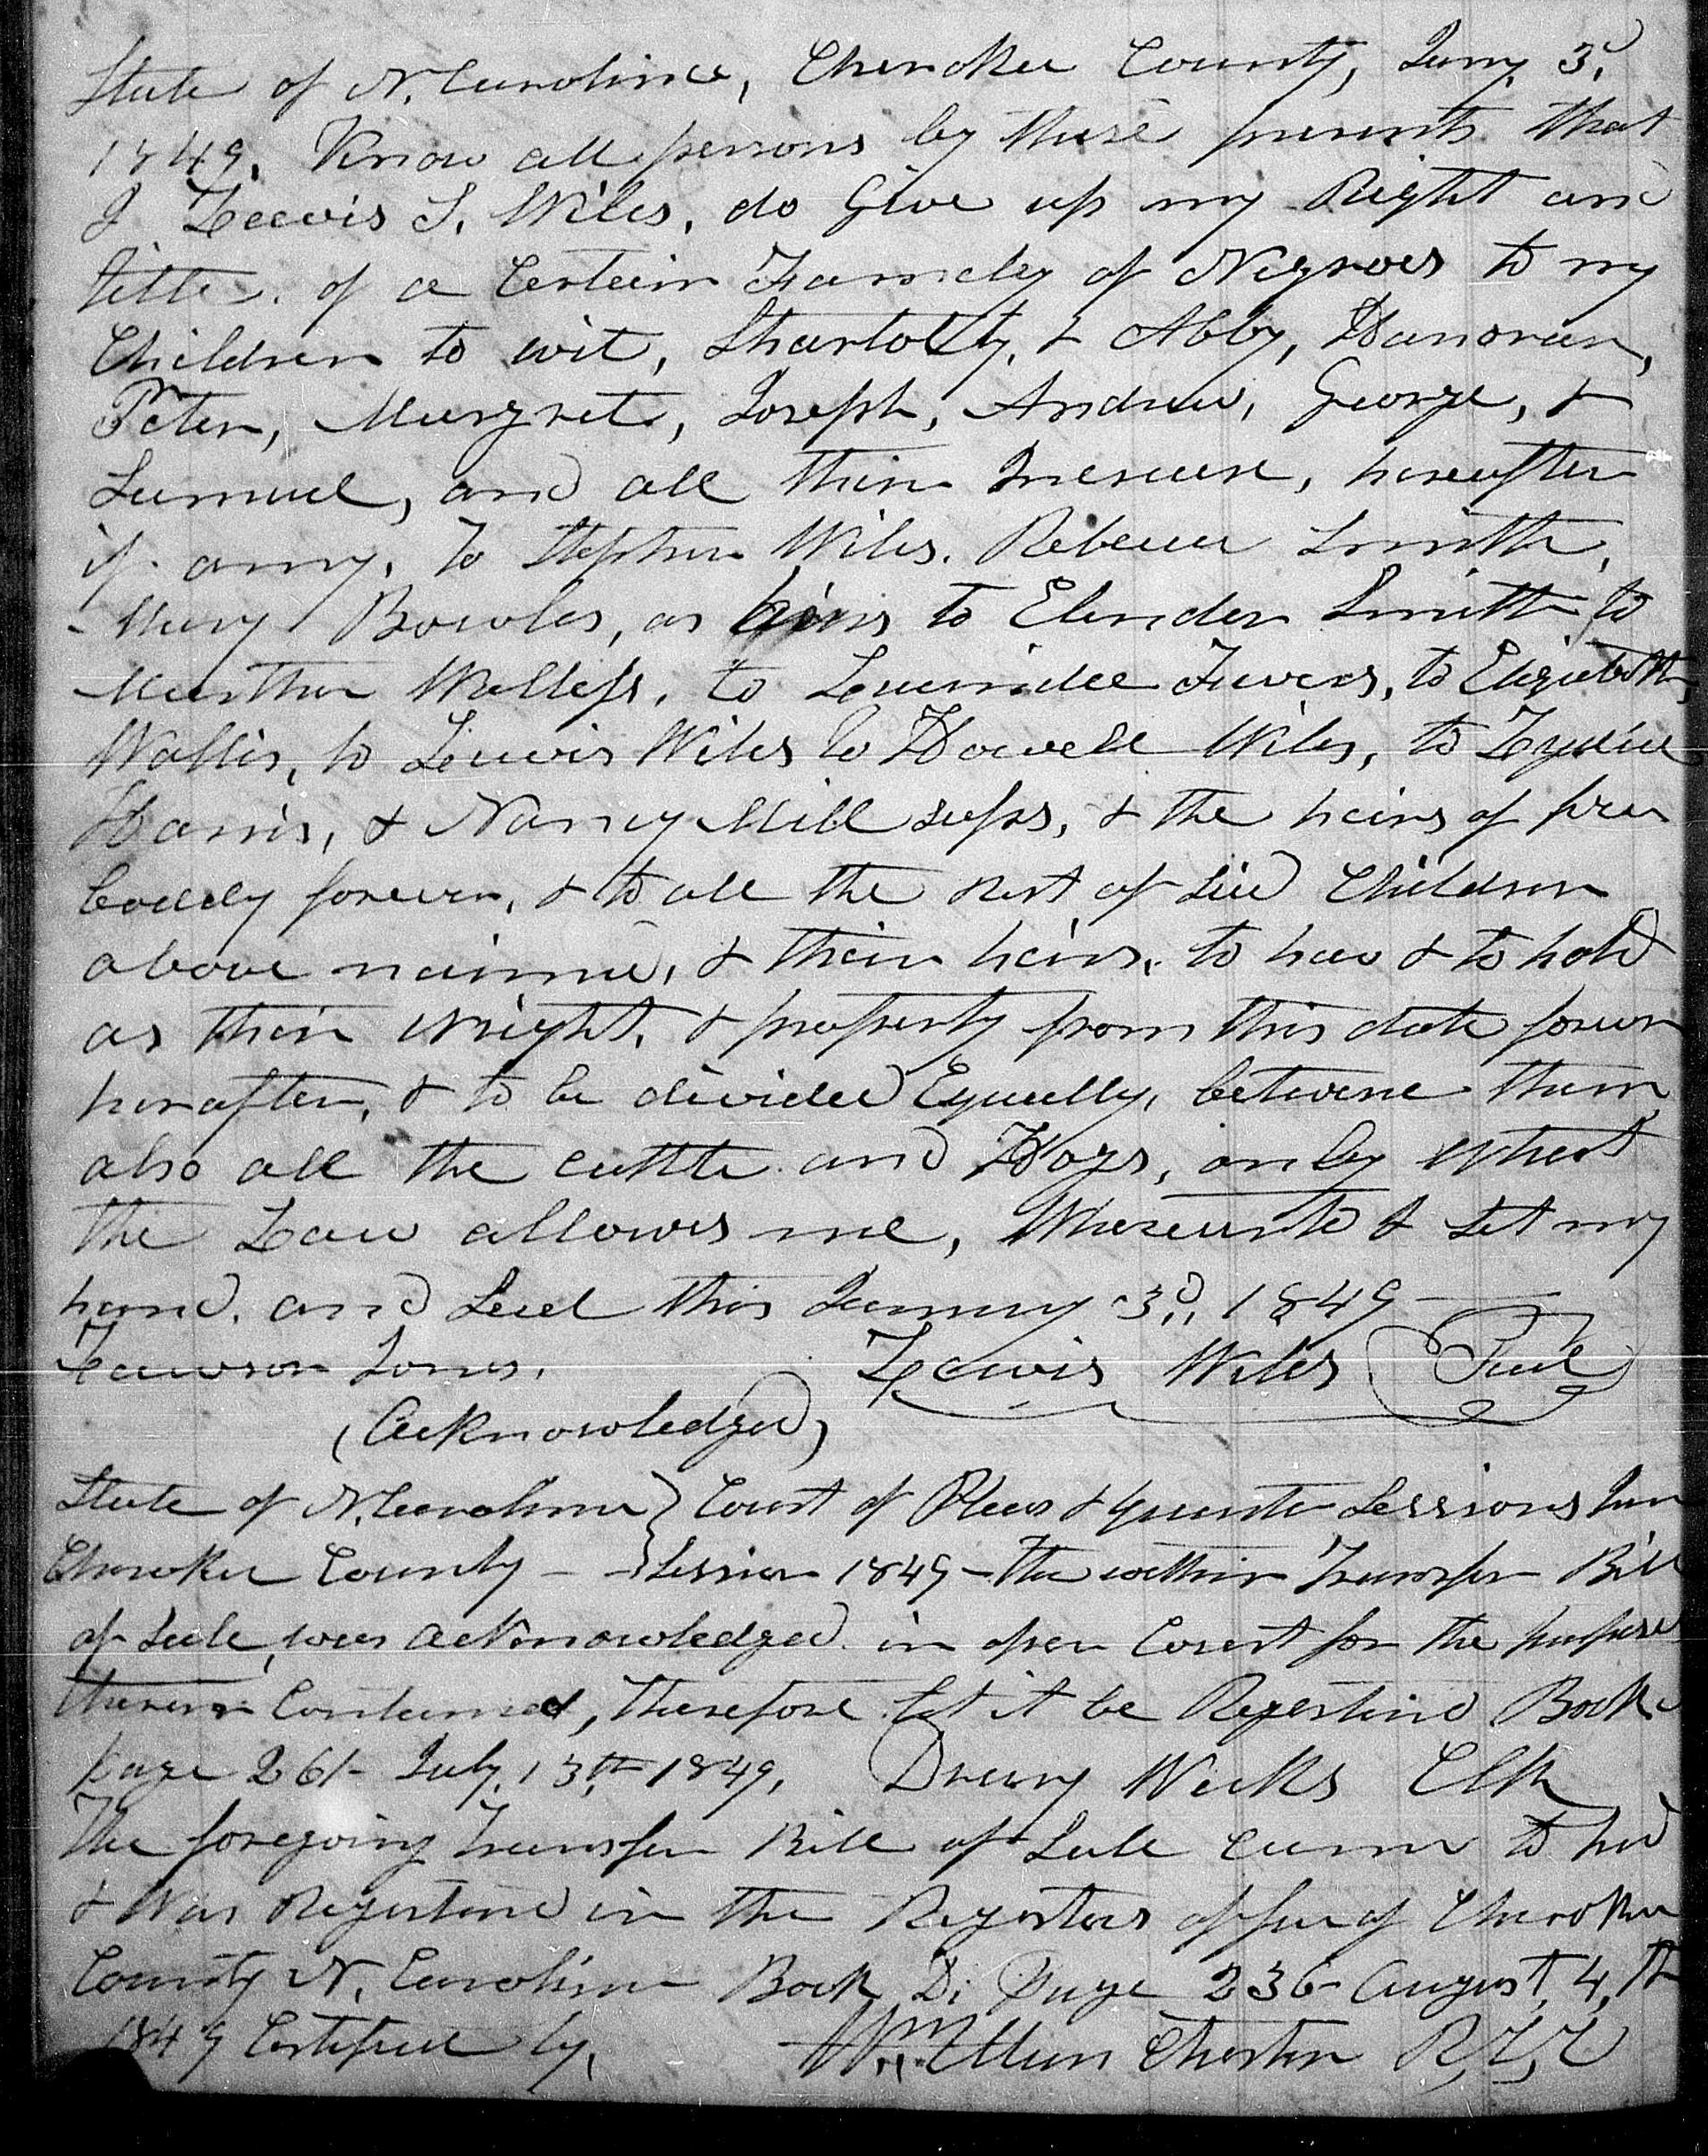 State of N. Carolina, Cherokee County, Jany 3d,
1849, Know all persons by these presents that
I Lewis S. Wiles, do Give up my Right and
title. of a Certain Famely of Negroes to my
Children to wit, Sharlotty, & Abby, Hanorean,
Peter, Margret, Joseph, Andrew, George, &
Samuel, and all their Increase, hereafter
if anny, to Stephen Wiles. Rebecca Smith,
Mary Bowles, as heirs to Elender Smith to
Marthar Walless, to Lucindee Fuvers, to Elizabeth
Wallis, to Lewis Wiles to Howell Wiles, to Lydia
Harris, & Nancy Mill saps, & the heirs of her
boddy forever, & to all the rest of sid Children
above naimed, & their heirs. to hav & to hold
as their wright, & property from this date forever
herafter, & to be divided Equelly, betwene them
also all the cattle and Hogs, only what
the Law allows me, Whereunto I set my
hand. and Seal this January 3d,, 1849
Lawson Jones. Lewis Wiles Seal
(Acknowledged)
State of N. Carolina } Court of Pleas & quarter Sessions Jun
Cherokee County - - } Session 1849 - The within Transfer Bill
of Sale, was acknowledged in open Court for the purpose
therein Contained, Therefore let it be Regestered Book
page 261 - July 13th 1849, Drewry Weeks Clk
The foregoing Transfer Bill of Sale came to hd
& Was Regestered in the Regesters office of Cherokee
County N. Carolina Book D: Page 236 - August, 4,th
1849 Certifued by,